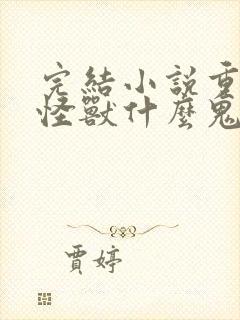 完結小說重
怪獸什麼鬼
賈婷